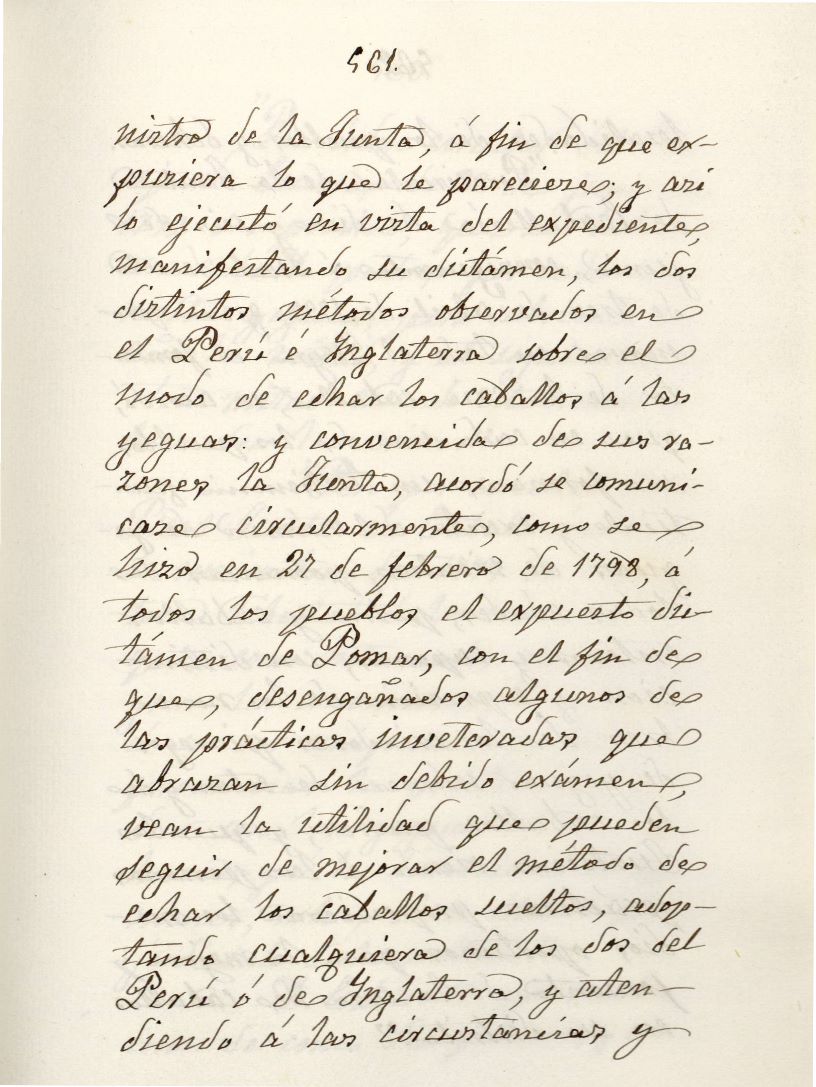 561.
nistro de la Junta, á fin de que ex-
pusiera lo que le pareciese; y así
lo ejecutó en vista del expediente,
manifestando su dictámen, los dos
distintos métodos observados en
el Perú é Inglaterra sobre el
modo de echar los caballos á las
yeguas: y convencida de sus ra-
zones la Junta, acordó se comuni-
case circularmente, como se
hizo en 27 de febrero de 1798, á
todos los pueblos el expuesto dic-
támen de Pomar, con el fin de
que, desengañados algunos de
las prácticas inveteradas que
abrazan sin debido exámen,
vean la utilidad que pueden
seguir de mejorar el método de
echar los caballos sueltos, adop-
tando cualquiera de los dos del
Perú ó de Inglaterra, y aten-
diendo á las circustáncias y